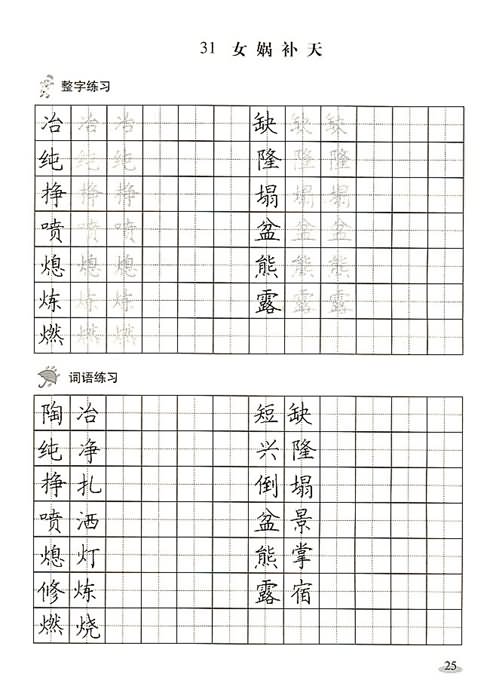 31 女娲补天
整字练习
冶 冶 冶 缺 缺 缺
纯 纯 纯 隆 隆 隆
挣 挣 挣 塌 塌 塌
喷 喷 喷 盆 盆 盆
熄 熄 熄 熊 熊 熊
炼 炼 炼 露 露 露
燃 燃 燃
词语练习
陶冶 短缺
纯净 兴隆
挣扎 倒塌
喷洒 盆景
熄灯 熊掌
修炼 露宿
燃烧
25